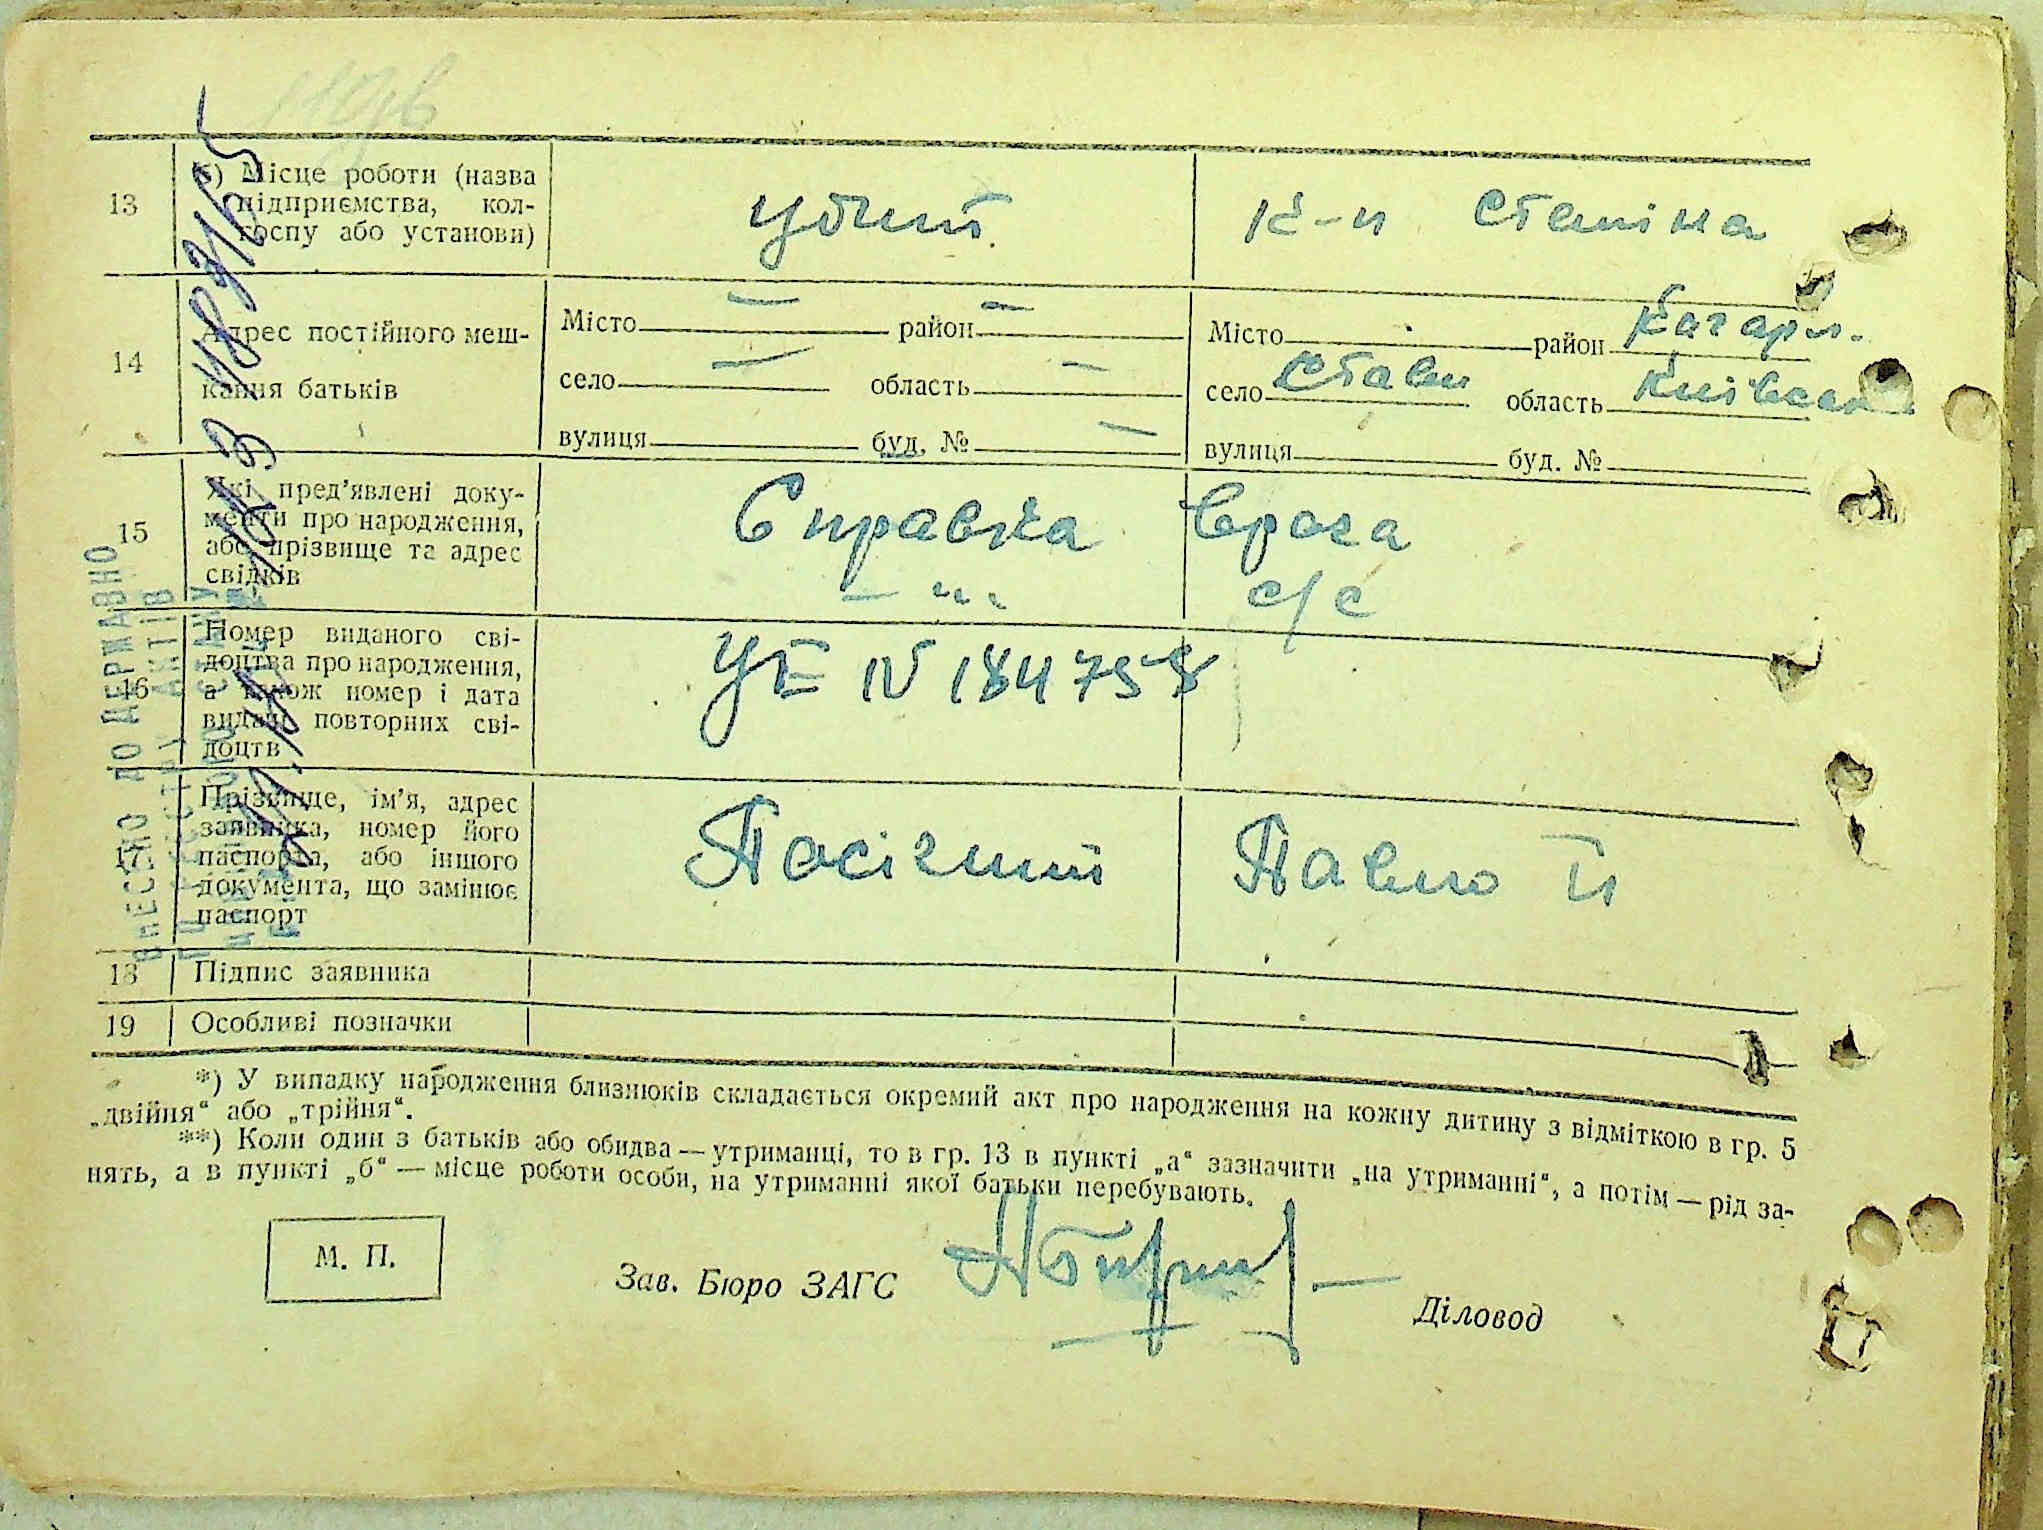 13
б) Місце роботи (назва
підприємства, кол-
госпу або установи)
убит
к-п Сталіна
14
Адрес постійного меш-
кання батьків
Місто — район —
село — область —
вулиця буд. № —
Місто район Кагарл.
село Стави область Київська
вулиця буд. №
15
Які пред’явлені доку-
менти про народження,
або прізвище та адрес
свідків
Справка врача
— " — с/с
16
Номер виданого сві-
доцтва про народження,
а також номер і дата
видачі повторних сві-
доцтв
УЕ № 184758
17
Прізвище, ім’я, адрес
заявника, номер його
паспорта, або іншого
документа, що замінює
паспорт
Посігний Павло П
18
Підпис заявника
19
Особливі позначки
*) У випадку народження близнюків складається окремий акт про народження на кожну дитину з відміткою в гр. 5
„двійня“ або „трійня“.
**) Коли один з батьків або обидва — утриманці, то в гр. 13 в пункті „а“ зазначити „на утриманні“, а потім — рід за-
нять, а в пункті „б“ — місце роботи особи, на утриманні якої батьки перебувають.
М. П.
Зав. Бюро ЗАГС
Діловод
ВНЕСЕНО ДО ДЕРЖАВНО